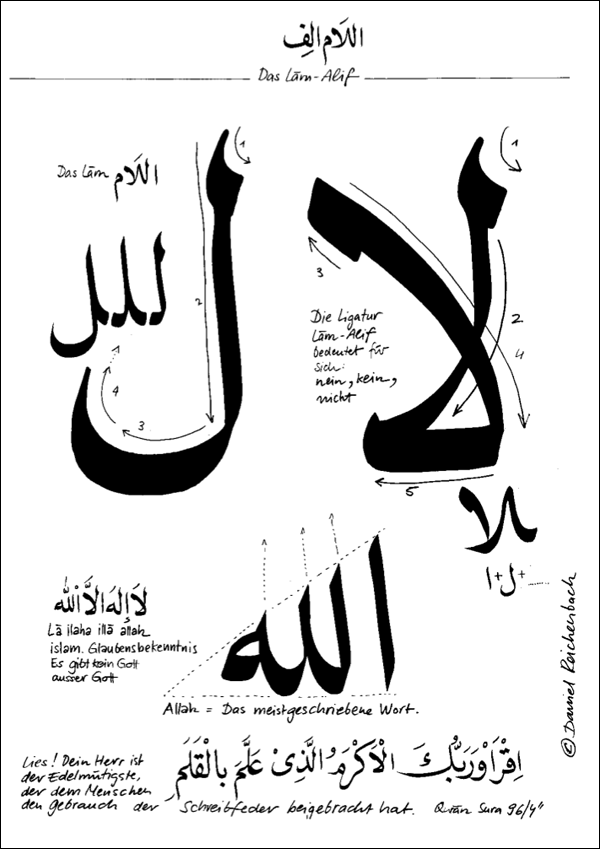 اللَّام الِف
Das Lām-Alif
Das Lām اللَّام
1
2
3
4
ل
للل
1
2
3
4
5
لا
Die Ligatur
Lām-Alif
bedeutet für
sich:
nein, kein,
nicht
لا
ا + ل +
لَا إِلٰهَ اِلَّا اللّٰه
Lā ilaha illā allah
islam. Glaubensbekenntnis
Es gibt kein Gott
ausser Gott
الله
Allah = Das meistgeschriebene Wort.
© Daniel Reichenbach
اِقْرَاْ وَرَبُّكَ الْاَكْرَمُ الَّذِىْ عَلَّمَ بِالْقَلَمِ
Lies! Dein Herr ist
der Edelmütigste,
der dem Menschen
den gebrauch der Schreibfeder beigebracht hat. Qurān Sura 96/4"